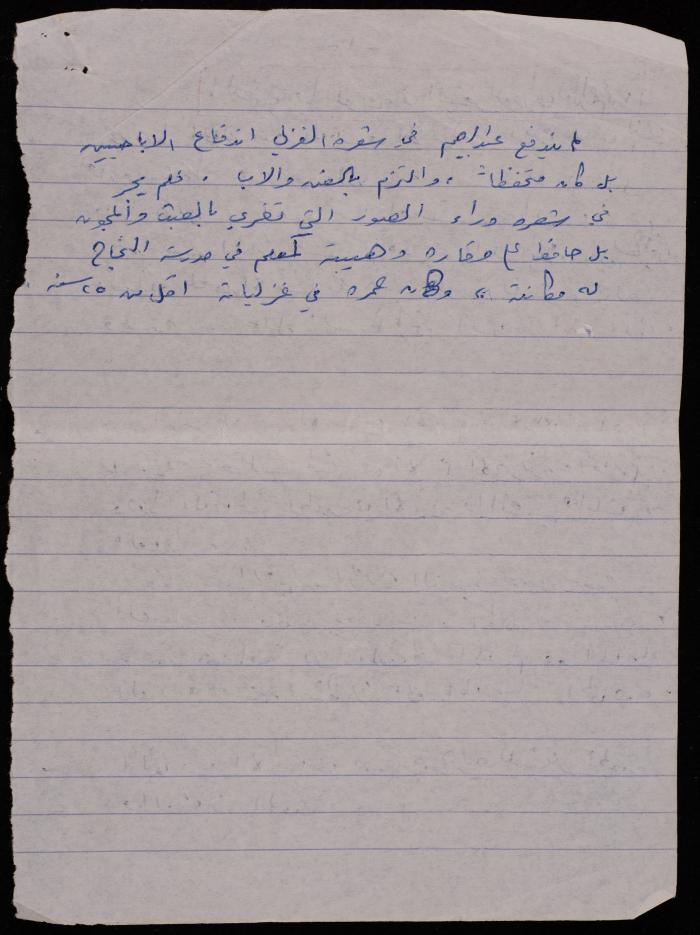 لم يندفع عبدالرحيم في شعره الغزلي اندفاع الاباحيين
بل كان متحفظاً ، والتزم بالعفه والادب . فلم يجر
في شعره وراء الصور التي تغري بالعبث والمجون
بل حافظ على وقاره وهيبته كمعلم في مدرسة النجاح
له مكانته ،، وكان عمره في غزلياته اقل من ٢٥ سنه .